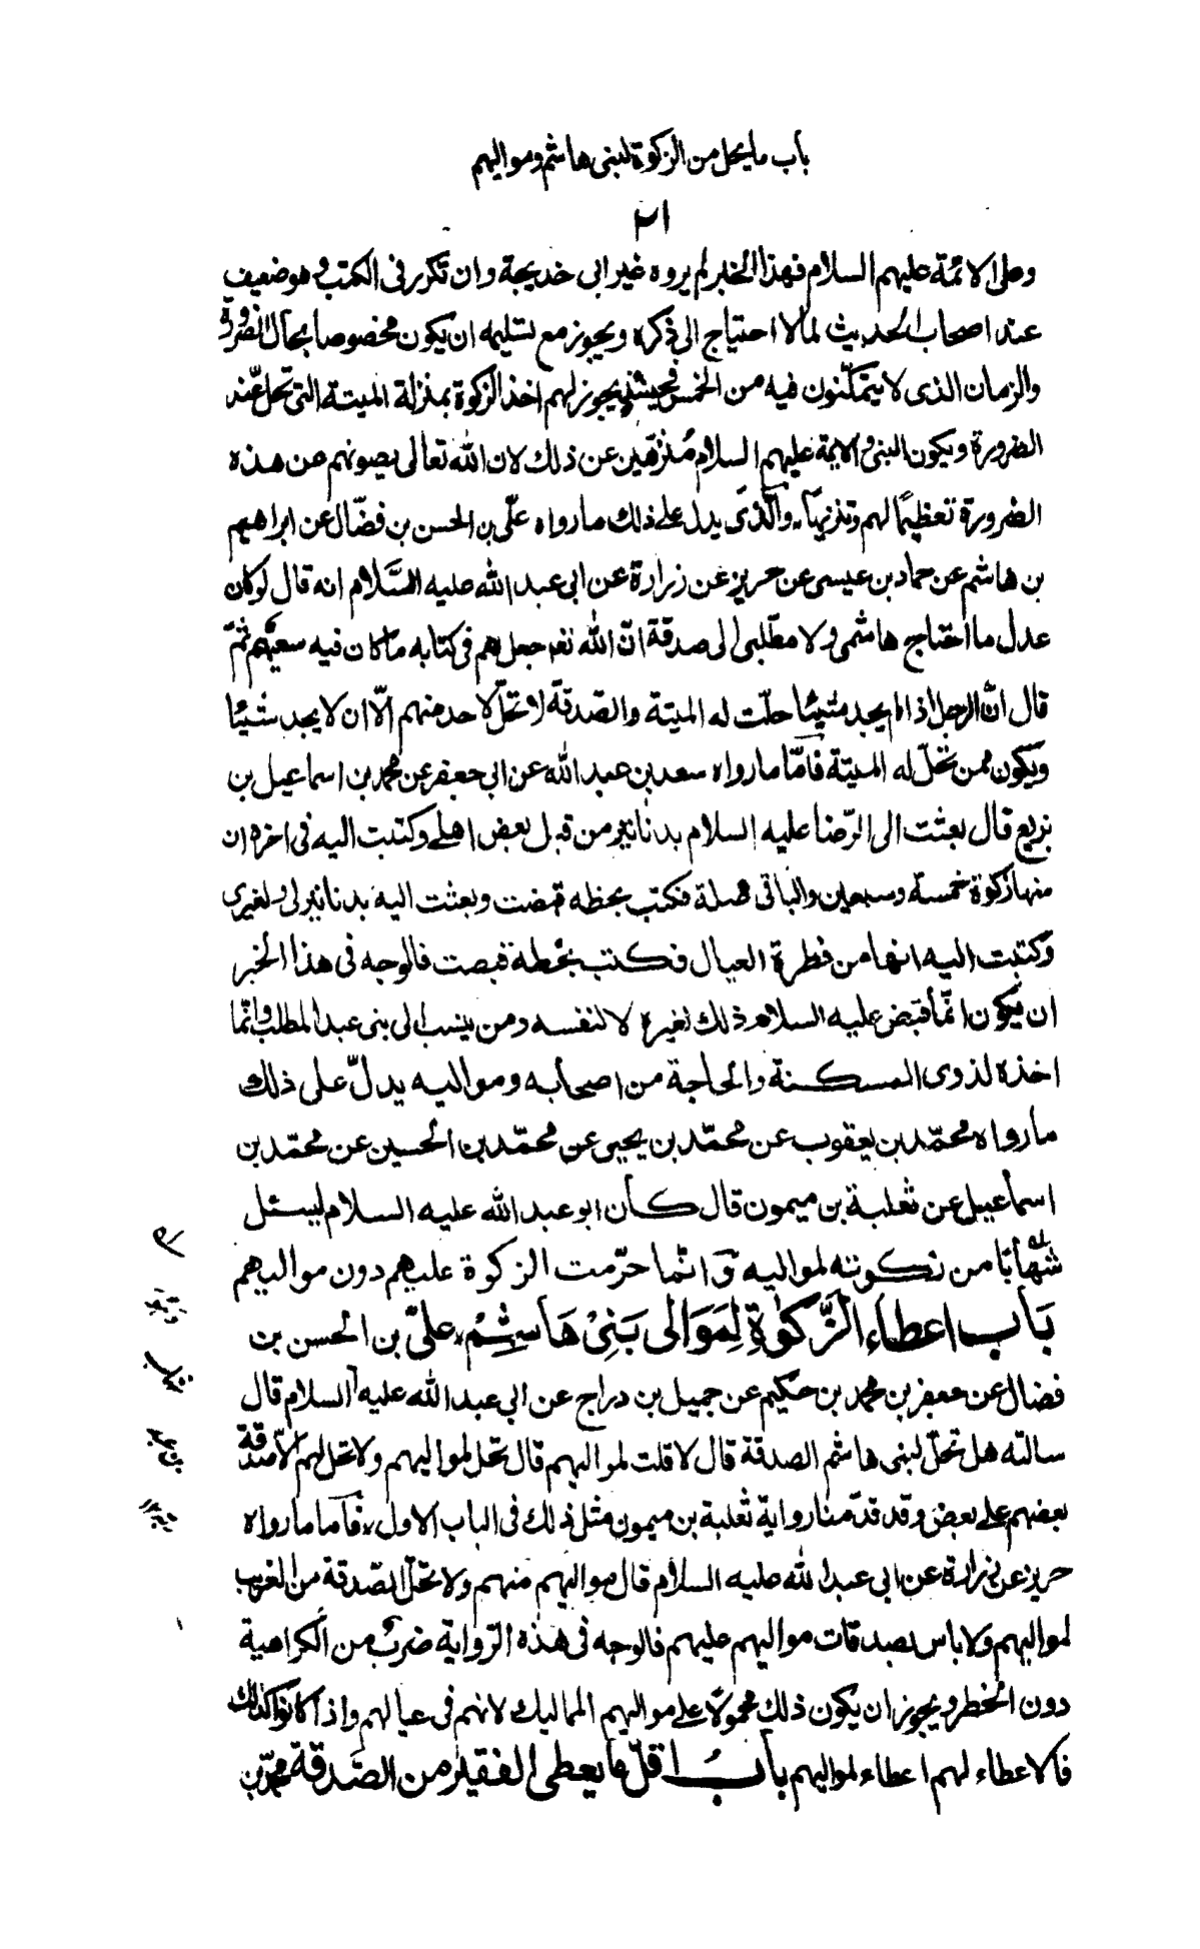 باب ما يحل من الزكوة لبنى هاشم ومواليهم
٢١
وعلى الائمة عليهم السلام فهذا الخبر لم يروه غير ابى خديجة وان تكرر فى الكتب وهو ضعيف
عند اصحاب الحديث لما لا احتياج الى ذكره ويجوز مع تسليمه ان يكون مخصوصا بحال الضرورة
والزمان الذى لا يتمكنون فيه من الخمس فحينئذ يجوز لهم اخذ الزكوة بمنزلة الميتة التى تحل عند
الضرورة ويكون النبى والائمة عليهم السلام منزهين عن ذلك لان الله تعالى يصونهم عن هذه
الضرورة تعظيما لهم وتنزيها، والذى يدل على ذلك ما رواه على بن الحسن بن فضال عن ابراهيم
بن هاشم عن حماد بن عيسى عن حريز عن زرارة عن ابى عبد الله عليه السلام انه قال لو كان
عدل ما احتاج هاشمى ولا مطلبى الى صدقة ان الله تعم جعل لهم فى كتابه ما كان فيه سعتهم ثم
قال ان الرجل اذا لم يجد شيئا حلت له الميتة والصدقة لا تحل لاحد منهم الا ان لا يجد شيئا
ويكون ممن تحل له الميتة فاما ما رواه سعد بن عبد الله عن ابى جعفر عن محمد بن اسماعيل بن
بزيع قال بعثت الى الرضا عليه السلام بدنانير من قبل بعض اهلى وكتبت اليه فى اخره ان
منها زكوة خمسة وسبعين والباقى صلة فكتب بخطه قبضت وبعثت اليه بدنانير لى ولغيرى
وكتبت اليه انها من فطرة العيال فكتب بخطه قبضت فالوجه فى هذا الخبر
ان يكون انما قبض عليه السلام ذلك لغيره لا لنفسه ومن ينسب الى بنى عبد المطلب وانما
اخذه لذوى المسكنة والحاجة من اصحابه ومواليه يدل على ذلك
ما رواه محمد بن يعقوب عن محمد بن يحيى عن محمد بن الحسين عن محمد بن
اسماعيل عن ثعلبة بن ميمون قال كان ابو عبد الله عليه السلام ليسئل
شهابا من زكوته لمواليه وانما حرمت الزكوة عليهم دون مواليهم
بَاب اعطاء الزَّكوةِ لِمَوَالى بَنِىْ هَاشِمٍ، على بن الحسن بن
فضال عن جعفر بن محمد بن حكيم عن جميل بن دراج عن ابى عبد الله عليه السلام قال
سالته هل تحل لبنى هاشم الصدقة قال لا قلت لمواليهم قال تحل لمواليهم ولا تحل لهم الا صدقة
بعضهم على بعض وقد قدمنا رواية ثعلبة بن ميمون مثل ذلك فى الباب الاول، فاما ما رواه
حريز عن زرارة عن ابى عبد الله عليه السلام قال مواليهم منهم ولا تحل الصدقة من الغريب
لمواليهم ولا باس بصدقات مواليهم عليهم فالوجه فى هذه الرواية ضرب من الكراهية
دون الخطر ويجوز ان يكون ذلك محمولا على مواليهم المماليك لانهم فى عيالهم واذا كانوا كذلك
فالاعطاء لهم اعطاء لمواليهم بابُ اقل ما يعطى الفقير من الصدقة محمد بن